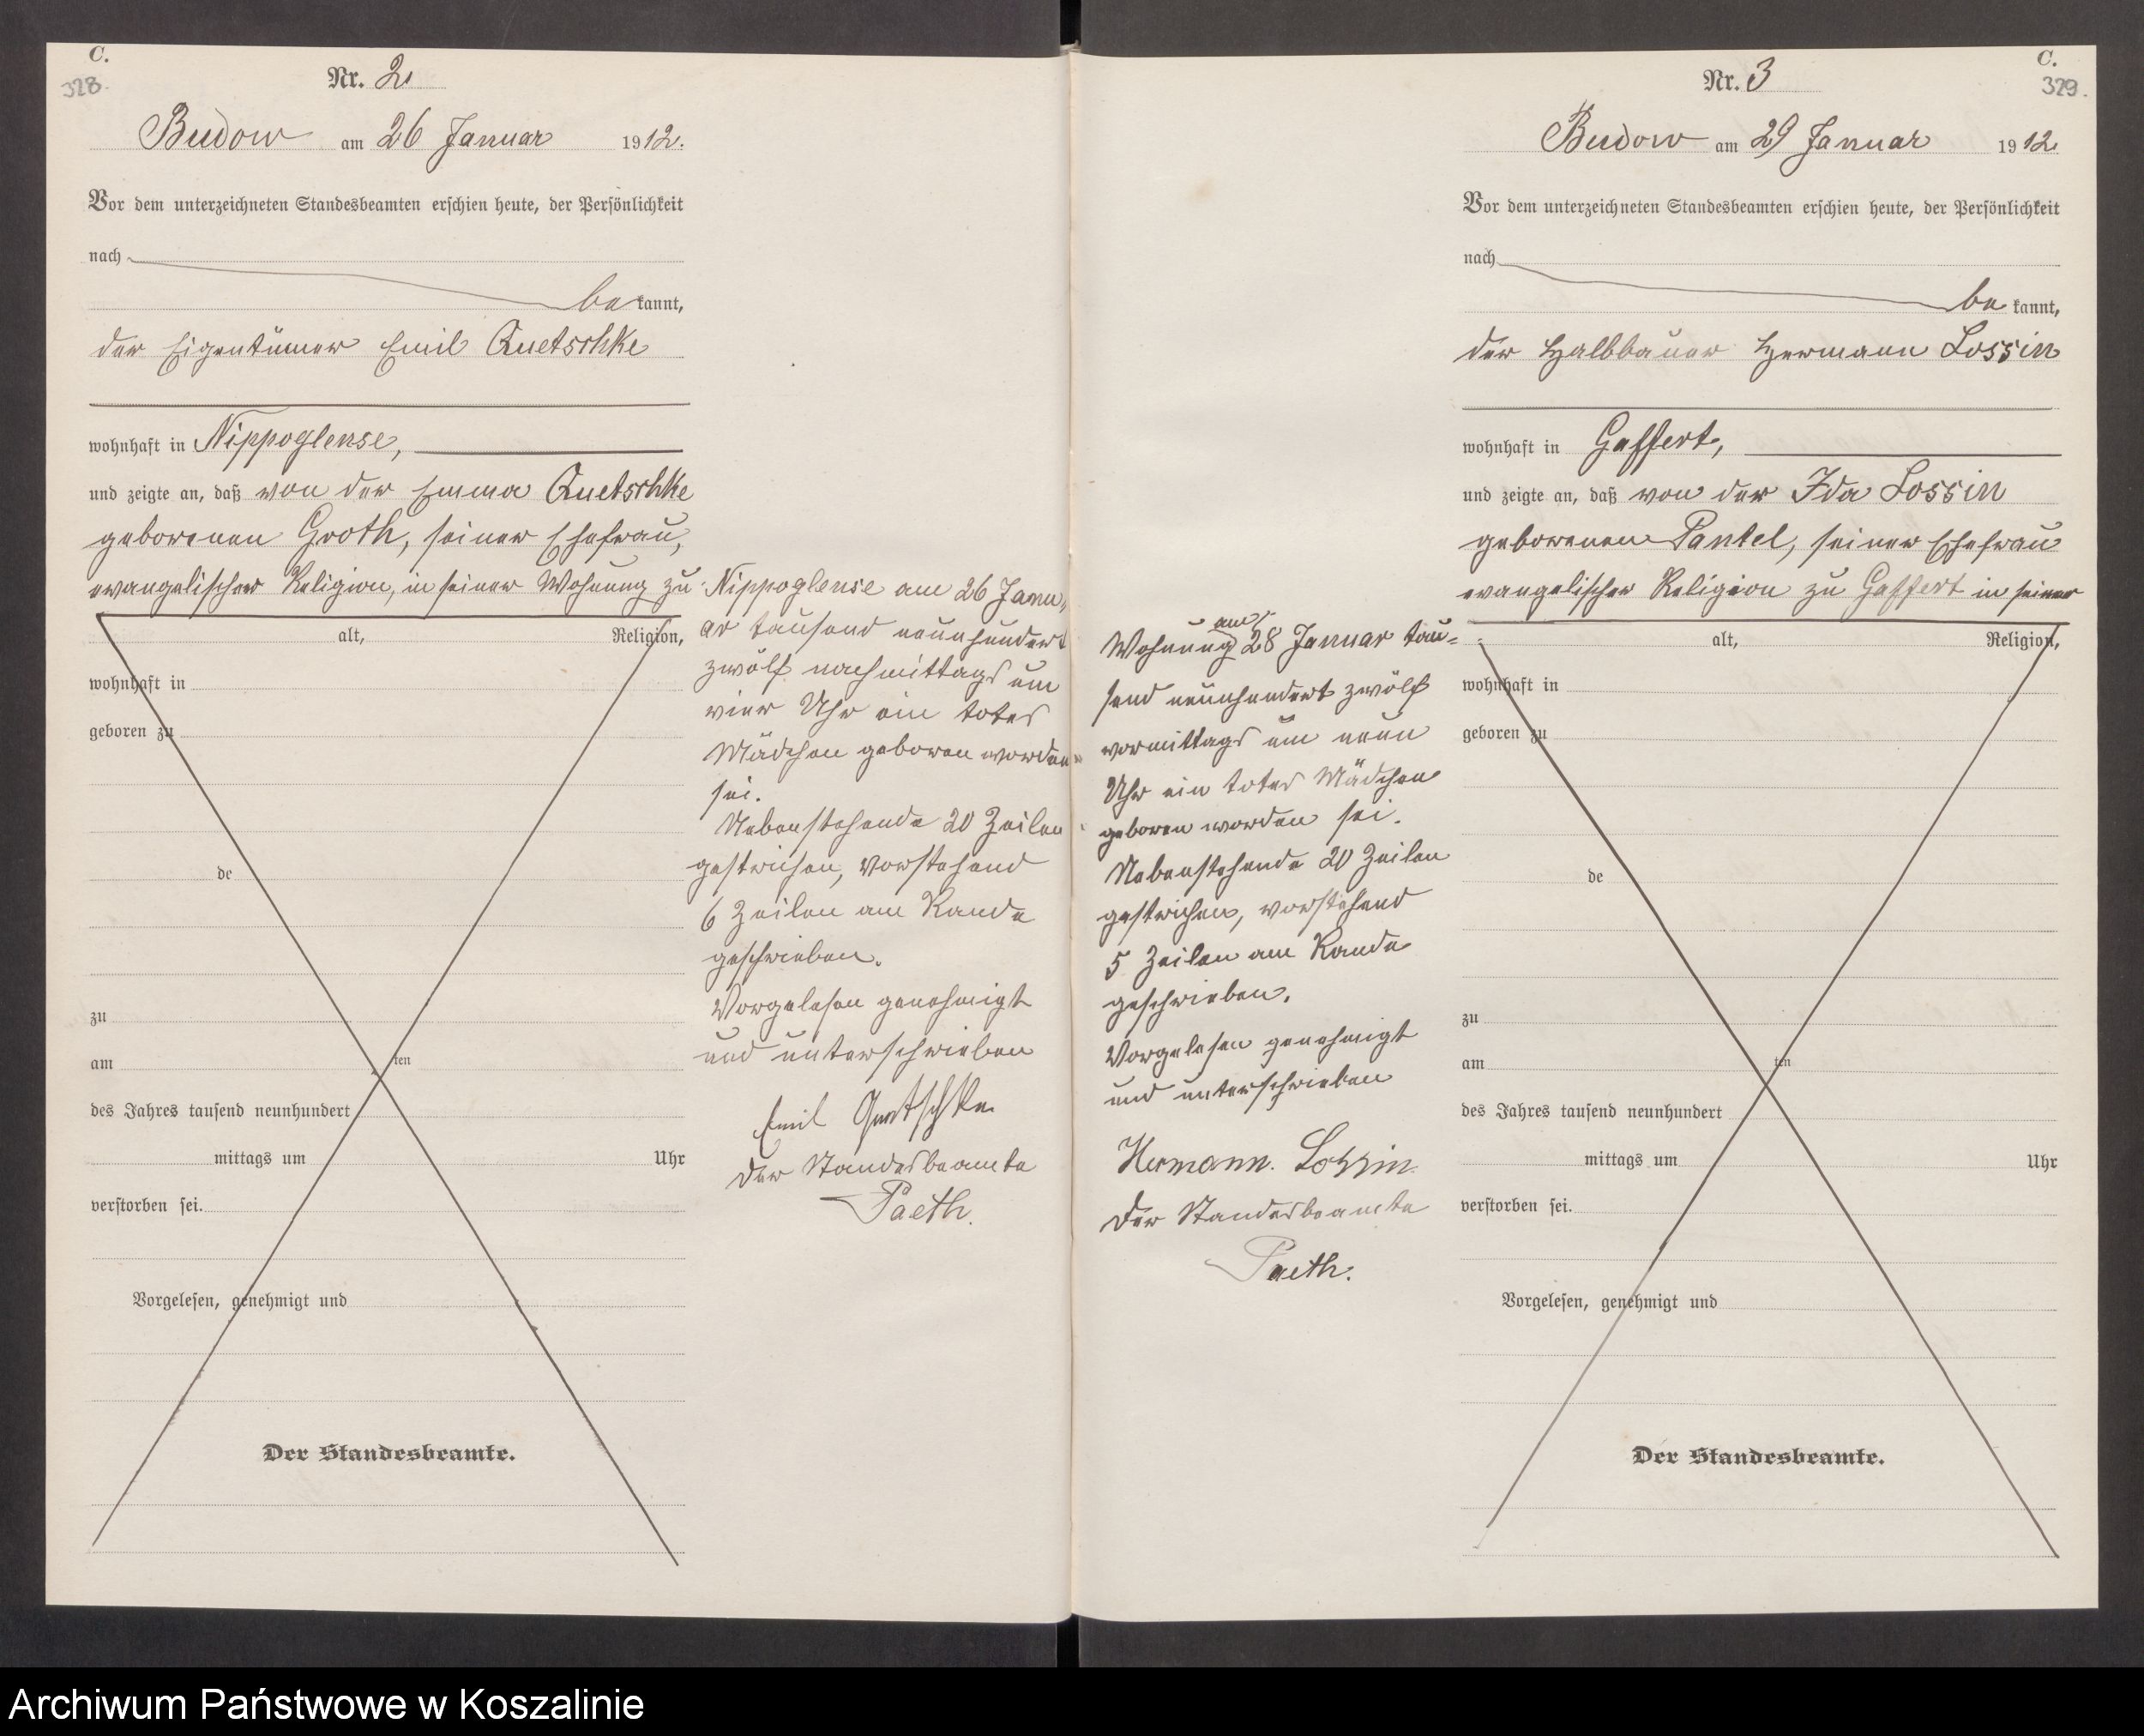 C.
328.
Nr. 2
Budow am 26 Januar 1912.
Vor dem unterzeichneten Standesbeamten erschien heute, der Persönlichkeit
nach
be kannt,
der Eigentümer Emil Quetschke
wohnhaft in Nippoglense,
und zeigte an, daß von der Emma Quetschke
geborenen Groth, seiner Ehefrau,
evangelischer Religion, in seiner Wohnung zu
alt, Religion,
wohnhaft in
geboren zu
de
zu
am ten
des Jahres tausend neunhundert
mittags um Uhr
verstorben sei.
Vorgelesen, genehmigt und
Der Standesbeamte.
Nippoglense am 26 Janu„
ar tausend neunhundert
zwölf nachmittags um
vier Uhr ein totes
Mädchen geboren worden
sei.
Nebenstehende 20 Zeilen
gestrichen, vorstehend
6 Zeilen am Rande
geschrieben.
Vorgelesen genehmigt
und unterschrieben
Emil Quetschke
Der Standesbeamte
Paeth.
C.
329.
Nr. 3
Budow am 29 Januar 1912
Vor dem unterzeichneten Standesbeamten erschien heute, der Persönlichkeit
nach
be kannt,
der Halbbauer Hermann Lossin
wohnhaft in Gaffert,
und zeigte an, daß von der Ida Lossin
geborenen Pantel, seiner Ehefrau
evangelischer Religion zu Gaffert in seiner
alt, Religion,
wohnhaft in
geboren zu
de
zu
am ten
des Jahres tausend neunhundert
mittags um Uhr
verstorben sei.
Vorgelesen, genehmigt und
Der Standesbeamte.
am
Wohnung 28 Januar tau=
send neunhundert zwölf
vormittags um neun
Uhr ein totes Mädchen
geboren worden sei.
Nebenstehende 20 Zeilen
gestrichen, vorstehend
5 Zeilen am Rande
geschrieben.
Vorgelesen genehmigt
und unterschrieben
Hermann. Lossin.
Der Standesbeamte
Paeth.
Archiwum Państwowe w Koszalinie